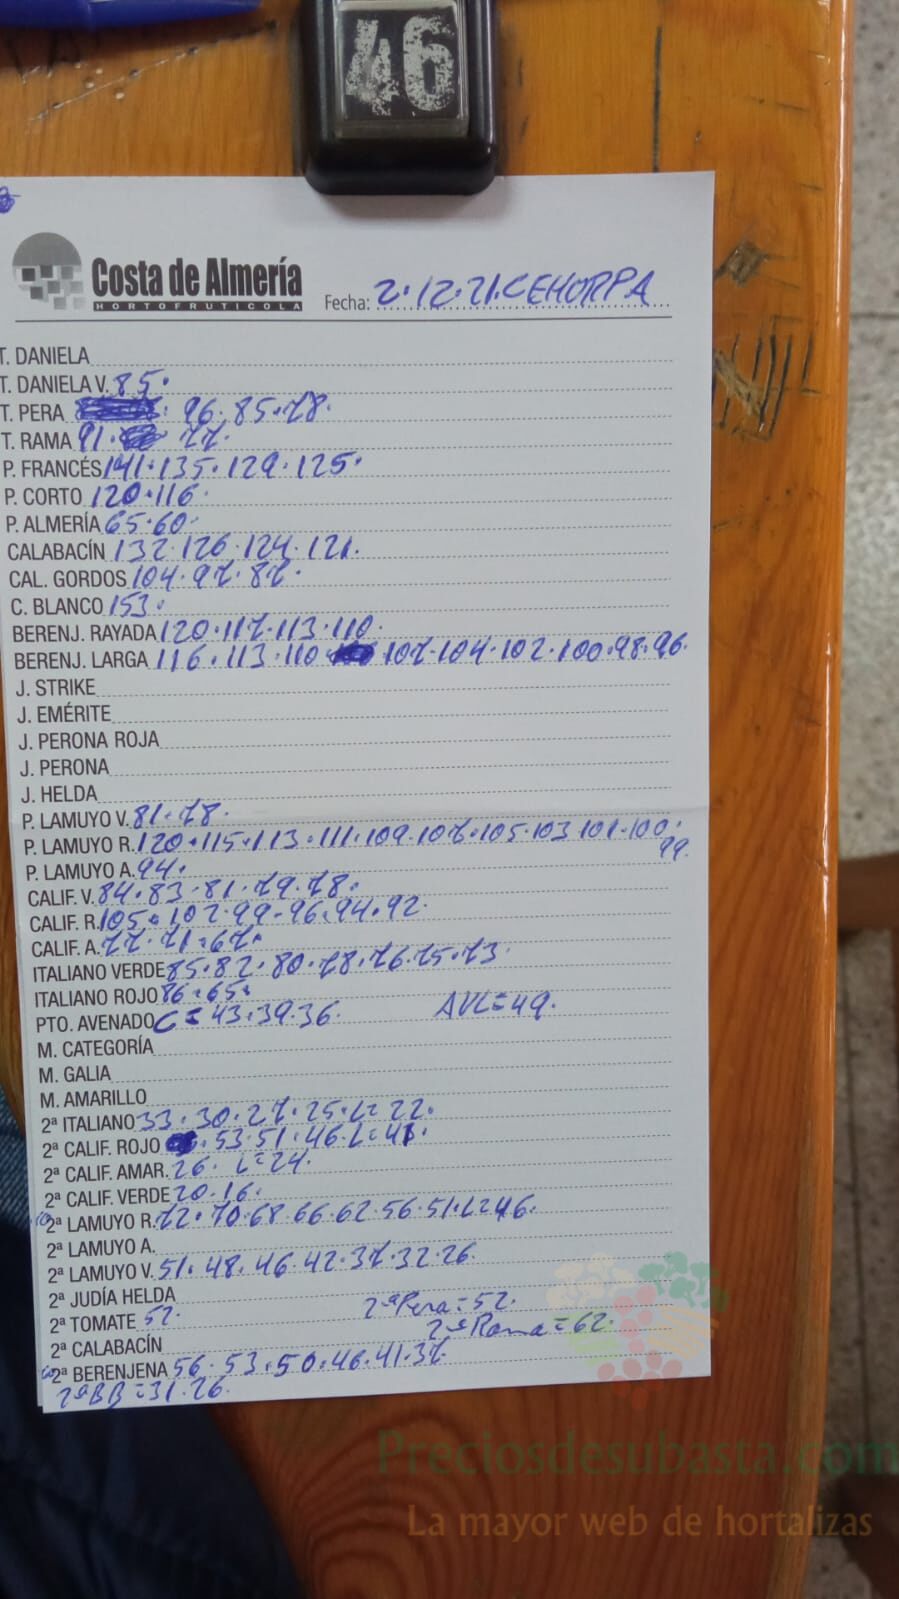 46
Costa de Almería
HORTOFRUTICOLA
Fecha: 2.12.21.CEHORPA
T. DANIELA
T. DANIELA V. 85.
T. PERA 96. 85.78.
T. RAMA 91. 77.
P. FRANCÉS 141.135.129.125.
P. CORTO 120.116.
P. ALMERÍA 65.60.
CALABACÍN 132.126.124.121.
CAL. GORDOS 104.97.87.
C. BLANCO 153.
BERENJ. RAYADA 120.117.113.110.
BERENJ. LARGA 116.113.110. 107.104.102.100.98.96.
J. STRIKE
J. EMÉRITE
J. PERONA ROJA
J. PERONA
J. HELDA
P. LAMUYO V. 81.78.
P. LAMUYO R. 120.115.113.111.109.107.105.103 101.100.
99.
P. LAMUYO A. 94.
CALIF. V. 84.83.81.79.78.
CALIF. R. 105.102.99.96.94.92.
CALIF. A. 77.71.67.
ITALIANO VERDE 85.82.80.78.76.75.73.
ITALIANO ROJO 86.65.
PTO. AVENADO C=43.39.36. AVL=49.
M. CATEGORÍA
M. GALIA
M. AMARILLO
2ª ITALIANO 33.30.27.25.L=22.
2ª CALIF. ROJO 53.51.46.L=41.
2ª CALIF. AMAR. 26. L=24.
2ª CALIF. VERDE 20.16.
2ª LAMUYO R. 72.70.68.66.62.56.51.L=46.
2ª LAMUYO A.
2ª LAMUYO V. 51.48.46.42.37.32.26.
2ª JUDÍA HELDA
2ª TOMATE 57. 2ªPera=52.
2ªRama=62.
2ª CALABACÍN
2ª BERENJENA 56.53.50.46.41.37.
2ªBB=31.26.
Preciosdesubasta.com
La mayor web de hortalizas